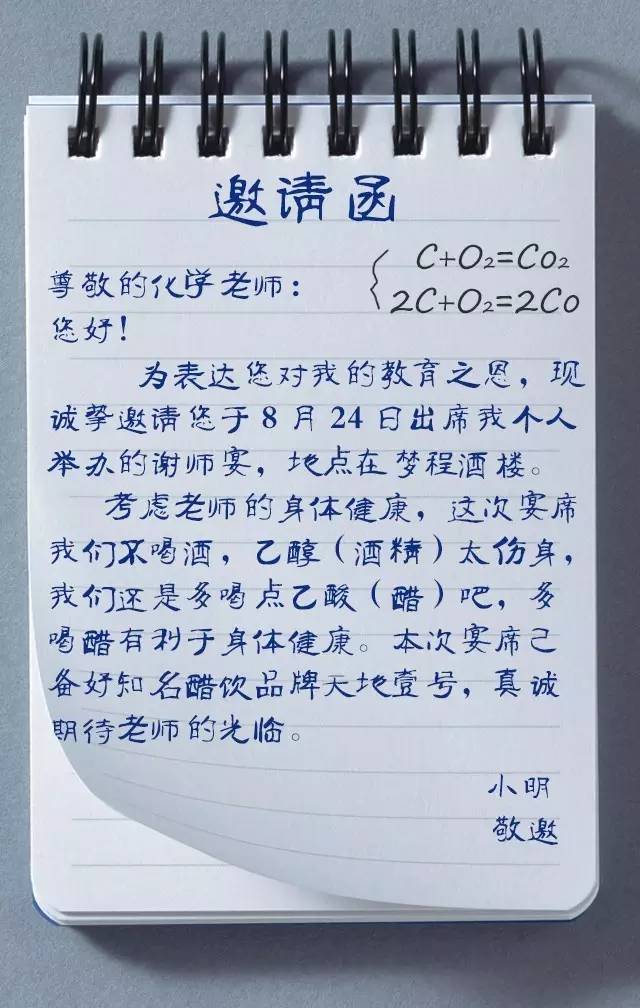 邀请函
C+O₂=Co₂
2C+O₂=2Co
尊敬的化学老师：
您好！
为表达您对我的教育之恩，现
诚挚邀请您于8月24日出席我个人
举办的谢师宴，地点在梦程酒楼。
考虑老师的身体健康，这次宴席
我们不喝酒，乙醇（酒精）太伤身，
我们还是多喝点乙酸（醋）吧，多
喝醋有利于身体健康。本次宴席已
备好知名醋饮品牌天地壹号，真诚
期待老师的光临。
小明
敬邀